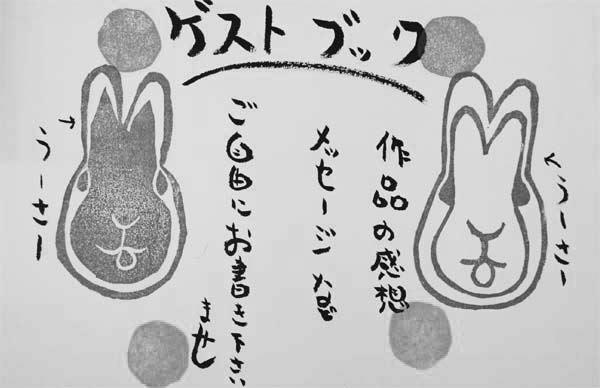 ゲストブック
←うーさー
作品の感想
メッセージ
ご自由にお書き下さい
ませ
→うーさー